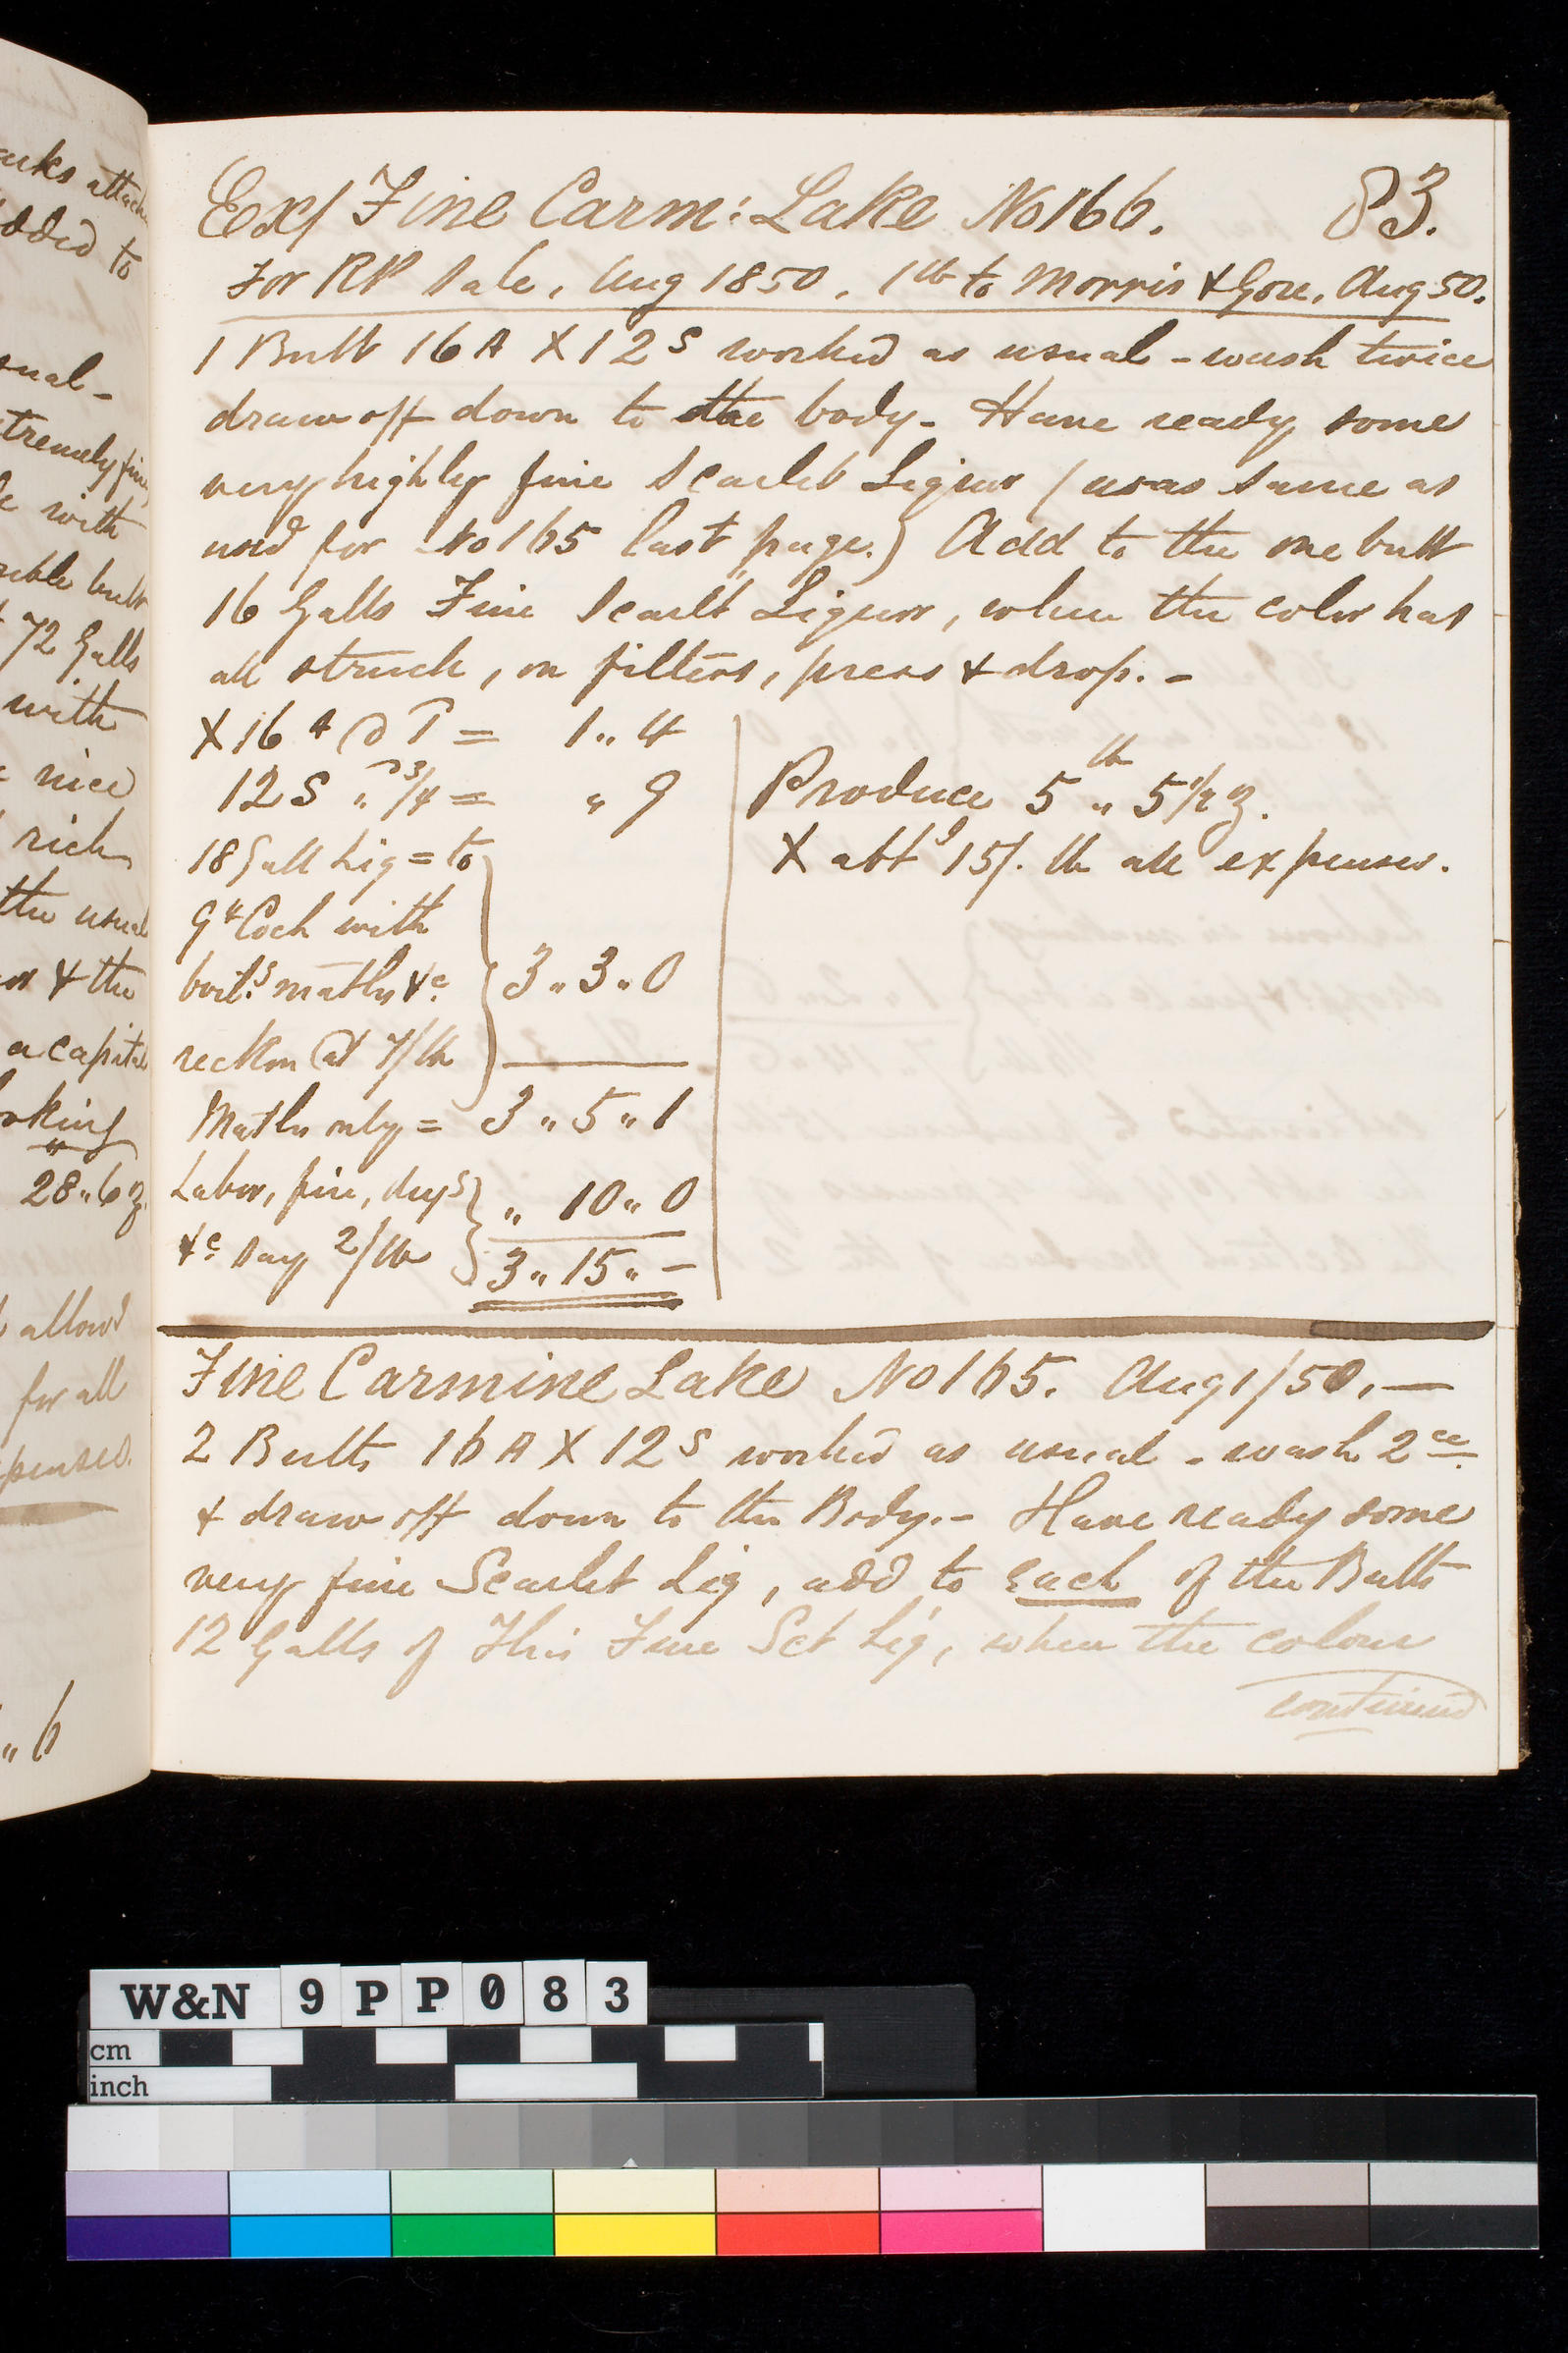 arks attach
dded to
sual -
tremely fine
with
uble butt
72 Galls
with
nice
rich
the usual
or & the
a capital
oking
28 .. 6 oz
allow'd
for all
penses.
.. 6
Ex/ Fine Carm: Lake No 166. 83.
For RP Sale, Aug 1850. 1 lb to Morris & Gore, Aug 50.
1 Butt 16 A X 12 S worked as usual - wash twice
draw off down to the body - Have ready some
very highly fine Scarlet Liquor / was same as
used for No 165 last page.) Add to the one butt
16 Galls Fine Scarlt Liquor, when the color has
all struck, on filters, press & drop. -
X 16 A @ 1 = 1 .. 4
12 S .. 3/4 = .. 9
18 Gall Liq = to
9 lb Coch with
boilg matls &c
reckon @ 7/ lb
3 .. 3 .. 0
Matls only = 3 .. 5 .. 1
Labor, fire, drygs
&c say 2/ lb
.. 10 .. 0
3 .. 15 .. -
Produce 5 lb .. 5 1/2 oz.
X abt 15/. lb all expenses.
Fine Carmine Lake No 165. Aug 1/50. —
2 Butts 16 A X 12 S worked as usual - wash 2ce
& draw off down to the Body. - Have ready some
very fine Scarlet Liq, add to each of the Butts
12 Galls of This Fine Sct Liq, when the colour
continued
W&N 9PP083
cm
inch